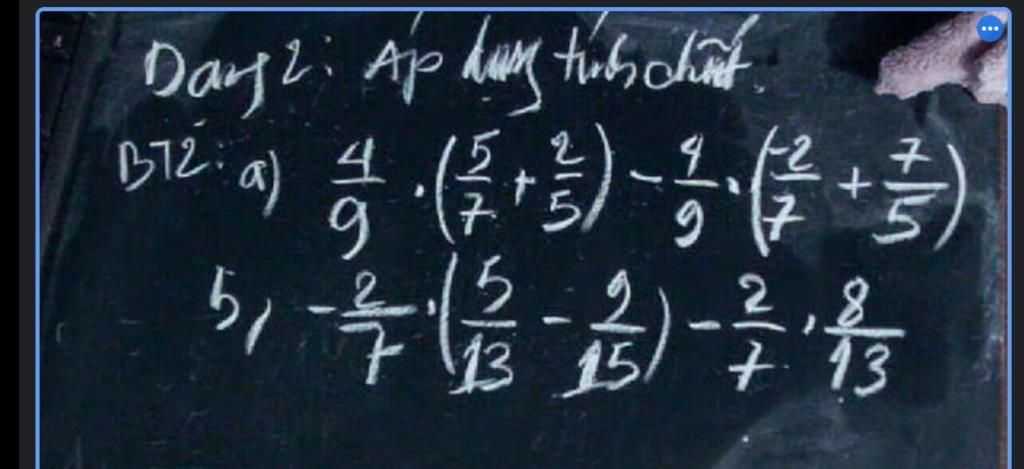 Dạng 2: Áp dụng tính chất.
BT2: a) 4/9 . (5/7 + 2/5) - 4/9 . (-2/7 + 7/5)
b, -2/7 . (5/13 - 9/15) - 2/7 . 8/13